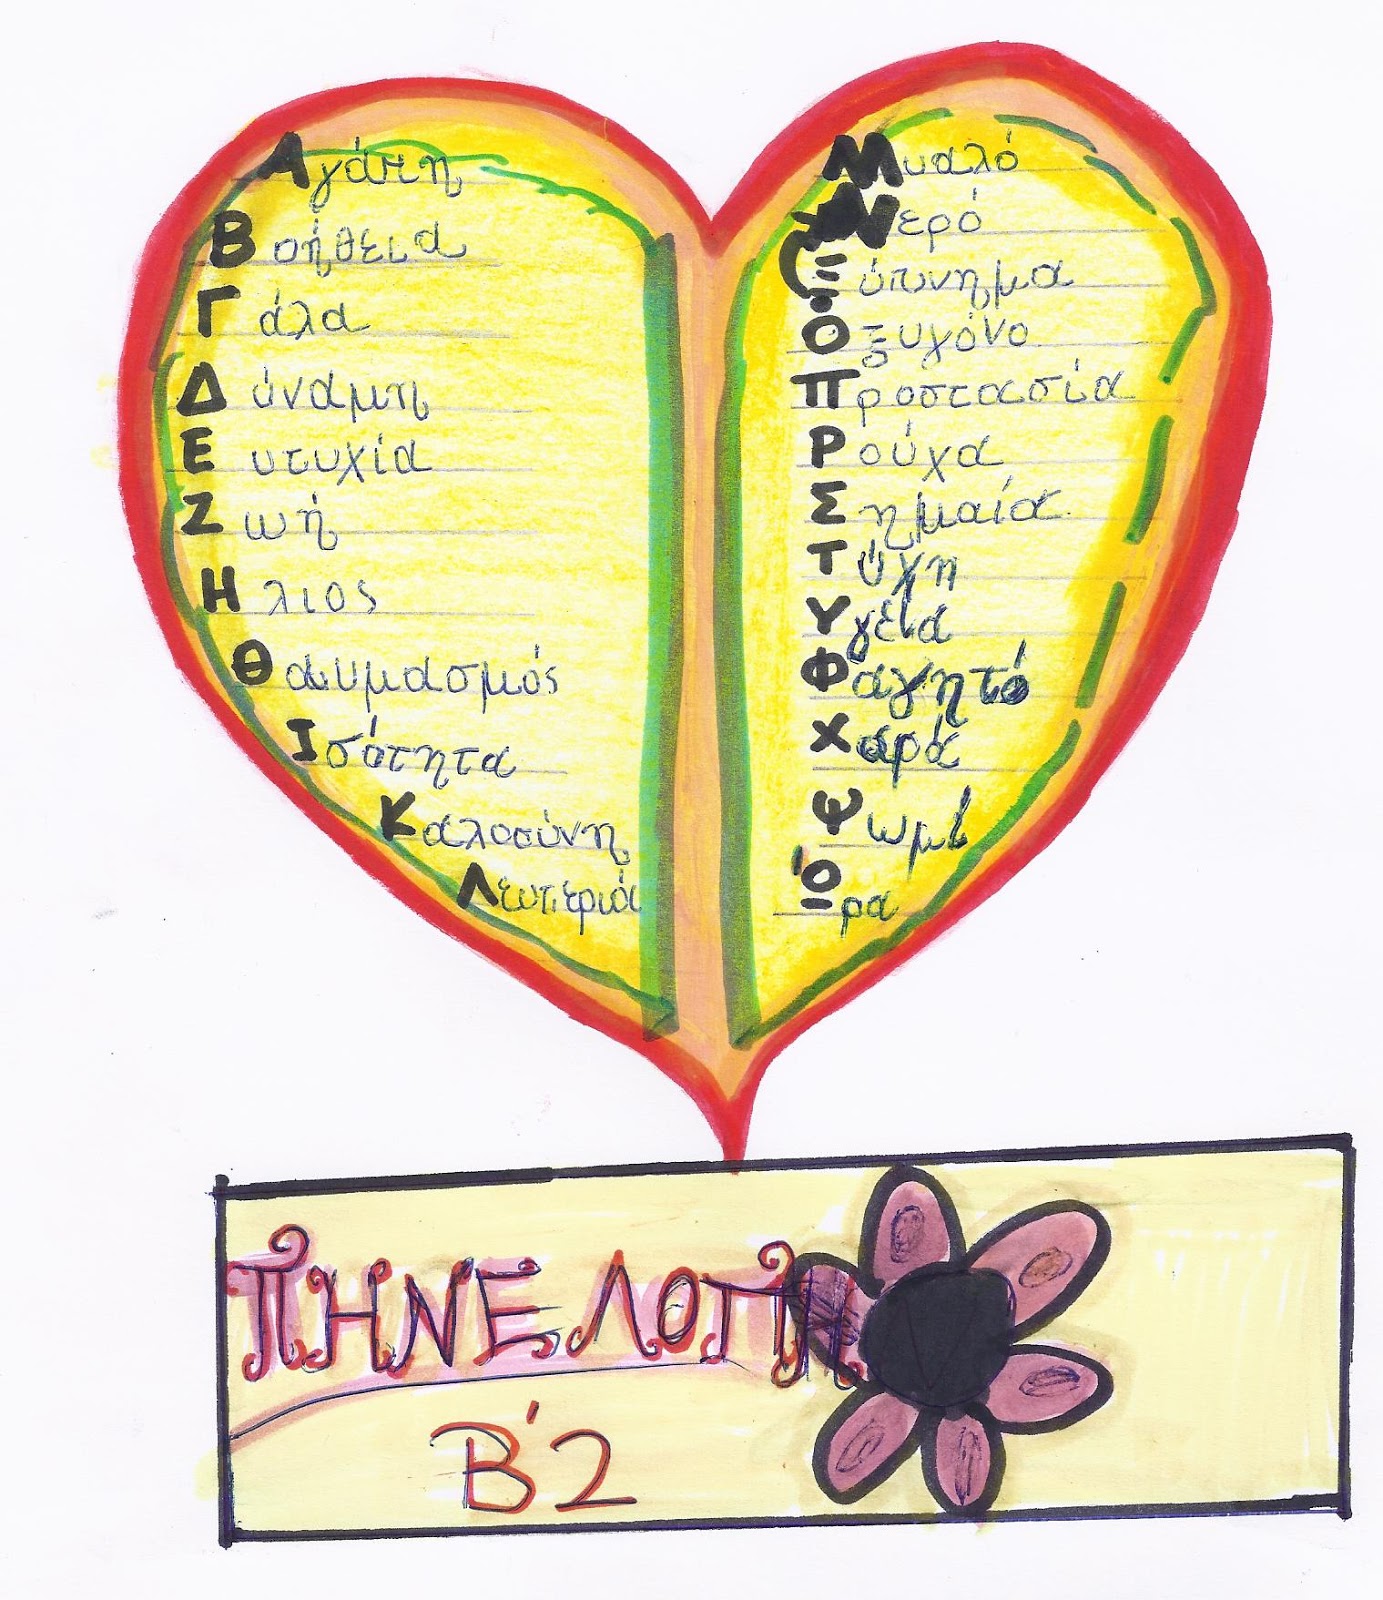 Αγάπη
Βοήθεια
Γάλα
Δύναμη
Ευτυχία
Ζωή
Ηλιος
Θαυμασμός
Ισότητα
Καλοσύνη
Λευτεριά
Μυαλό
Νερό
Ξύπνημα
Οξυγόνο
Προστασία
Ρούχα
Σημαία
Τύχη
Υγεία
Φαγητό
Χαρά
Ψωμί
Ώρα
ΠΗΝΕΛΟΠΗ
Β'2